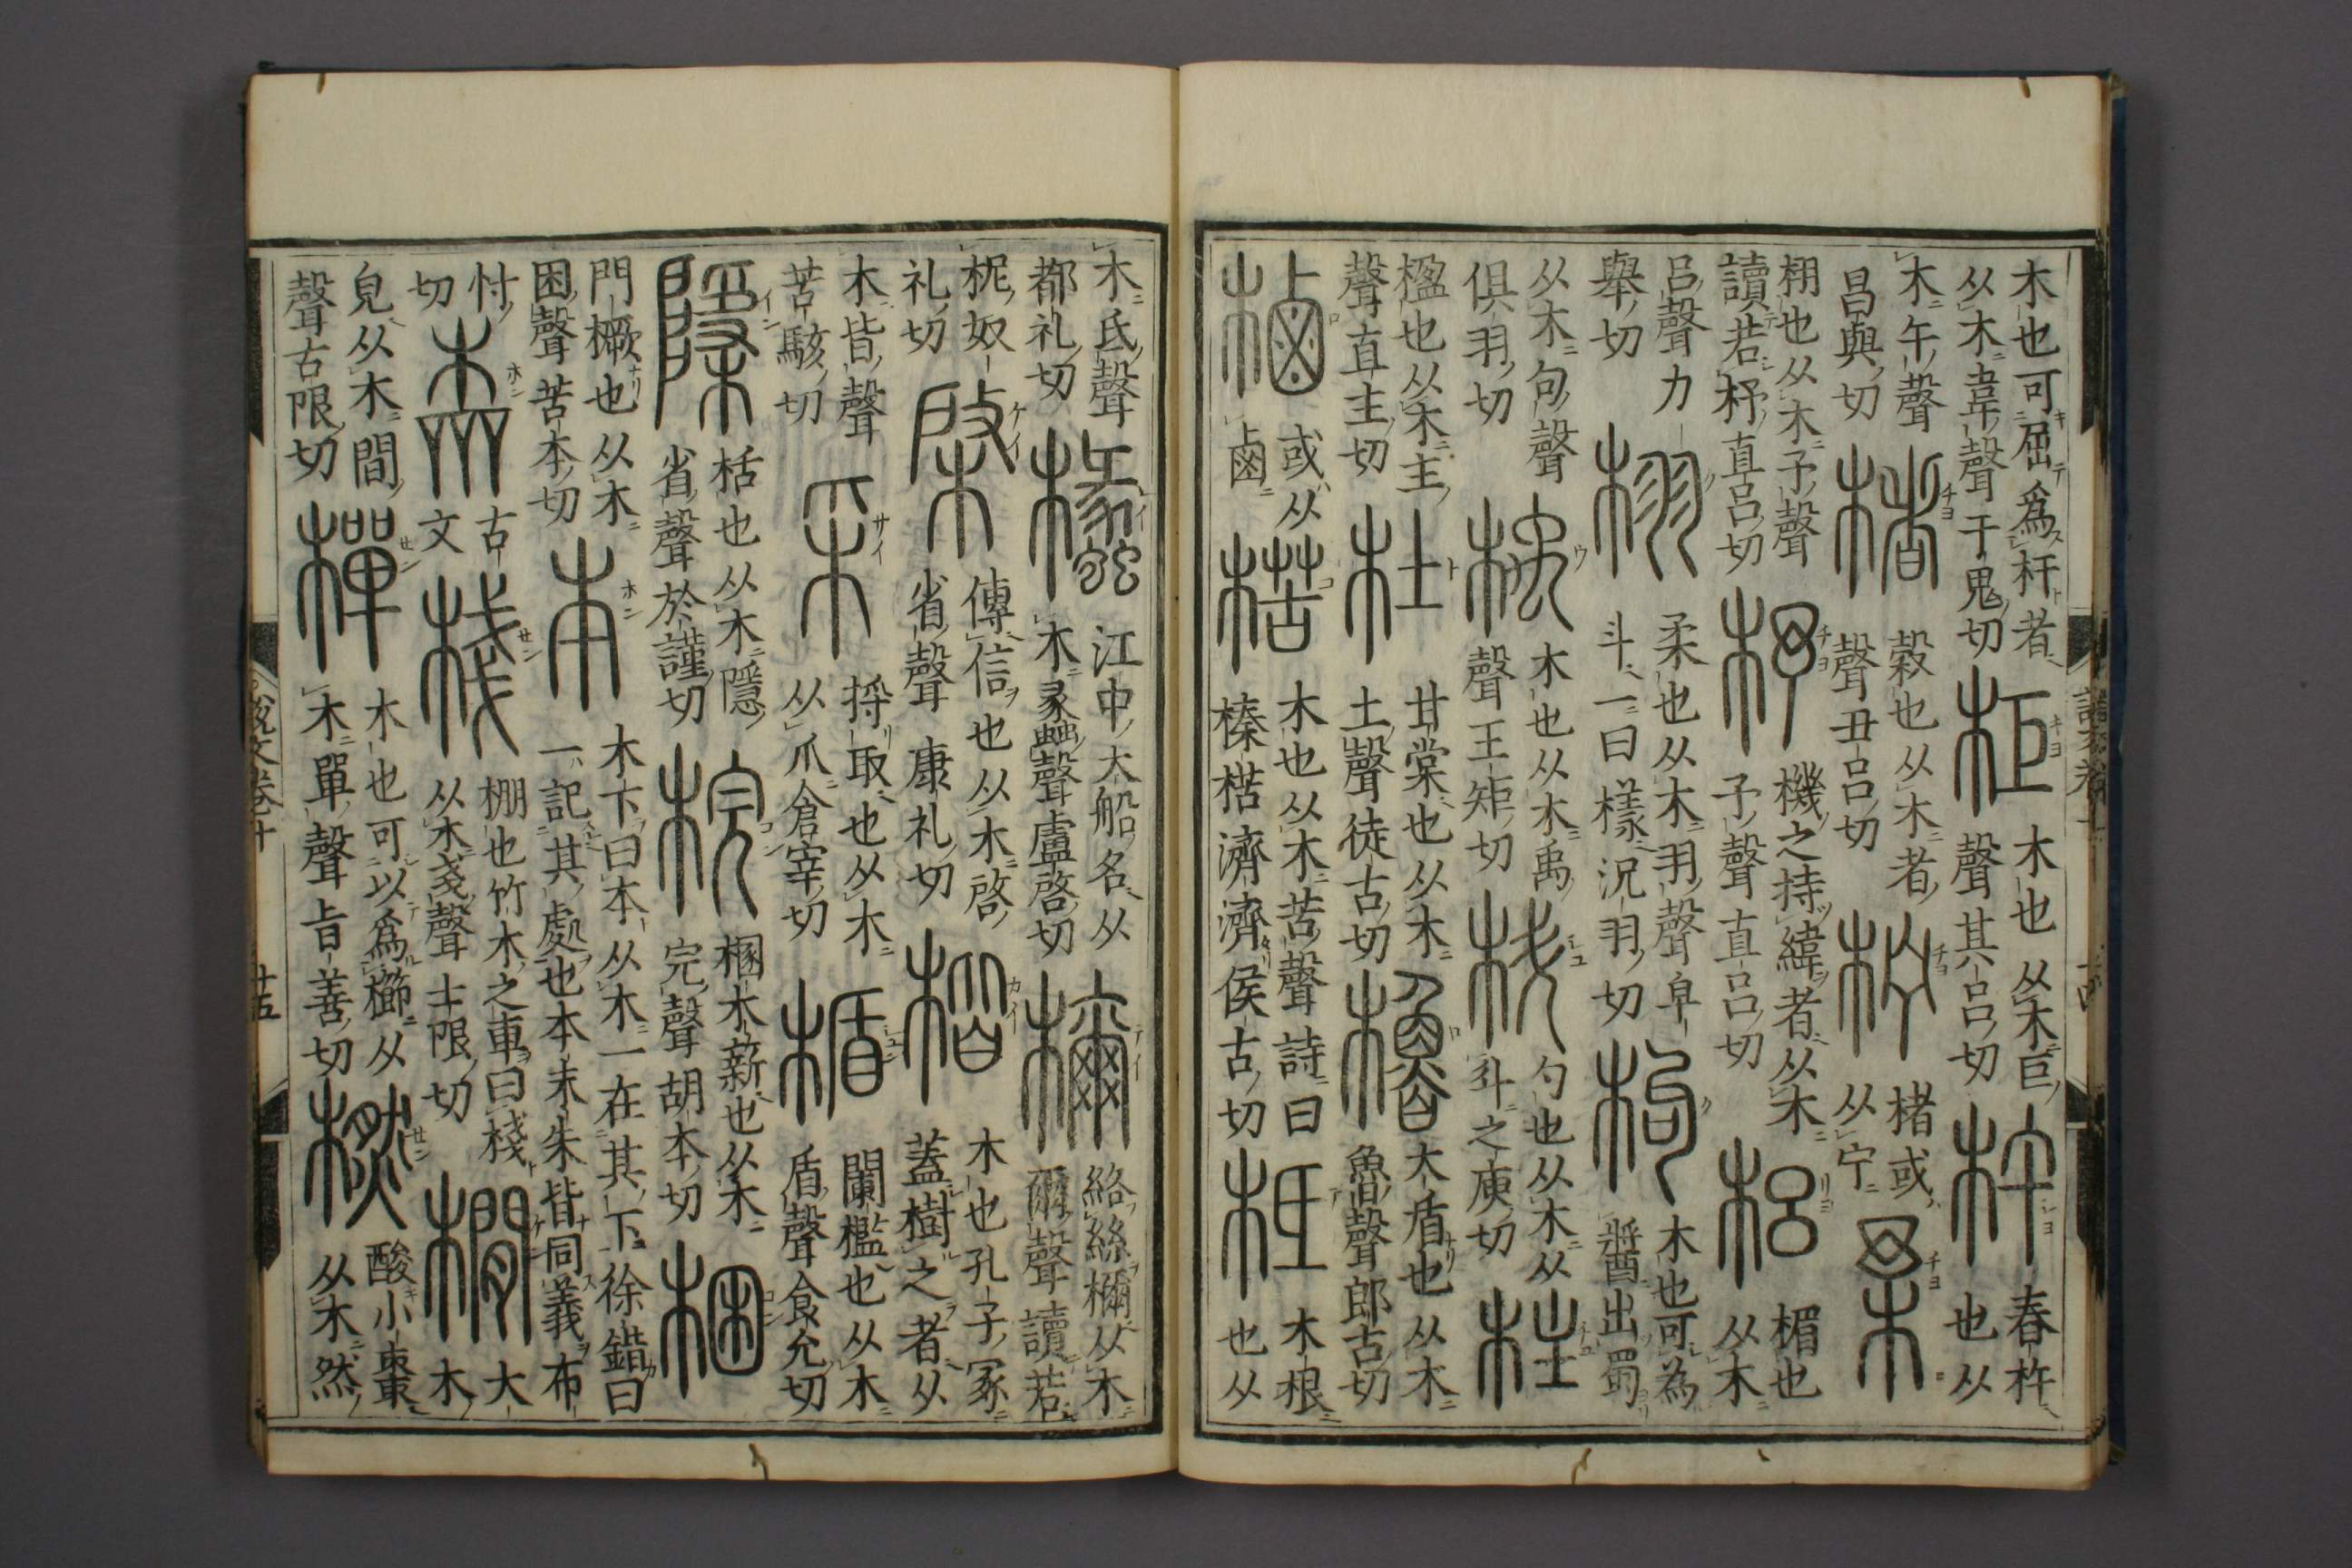 木也可屈爲杅者从木韋聲于鬼切 柜 木也从木巨聲其吕切 杵 舂杵也从
木午聲昌與切 楮 穀也从木者聲丑吕切 柠 楮或从宁 柔
栩也从木予聲讀若杼直吕切 杼 機之持緯者从木予聲直吕切 梠 楣也从木
吕聲力舉切 栩 柔也从木羽聲皁斗一曰樣況羽切 枸 木也可為醬出蜀
从木句聲俱羽切 楀 木也从木禹聲王矩切 枓 勺也从木从斗之庾切 柱
楹也从木主聲直主切 杜 甘棠也从木土聲徒古切 櫓 大盾也从木魯聲郎古切
樐 或从鹵 楛 木也从木苦聲詩曰榛楛濟濟侯古切 柢 木根也从
木氐聲都礼切 欚 江中大船名从木蠡聲盧啓切 檷 絡絲檷从木爾聲讀若
柅奴礼切 棨 傳信也从木啓省聲康礼切 楷 木也孔子冢蓋樹之者从
木皆聲苦駭切 采 捋取也从木从爪倉宰切 楯 闌檻也从木盾聲食允切
檃 栝也从木隱省聲於謹切 梡 棞木薪也从木完聲胡本切 梱
門橛也从木困聲苦本切 本 木下曰本从木一在其下徐鍇曰一記其處也本末朱皆同義布
忖切 𣎴 古文 棧 棚也竹木之車曰棧从木戔聲士限切 橺 大木
皃从木閒聲古限切 樿 木也可以爲櫛从木單聲旨善切 橪 酸小棗从木然
説文卷十 十五